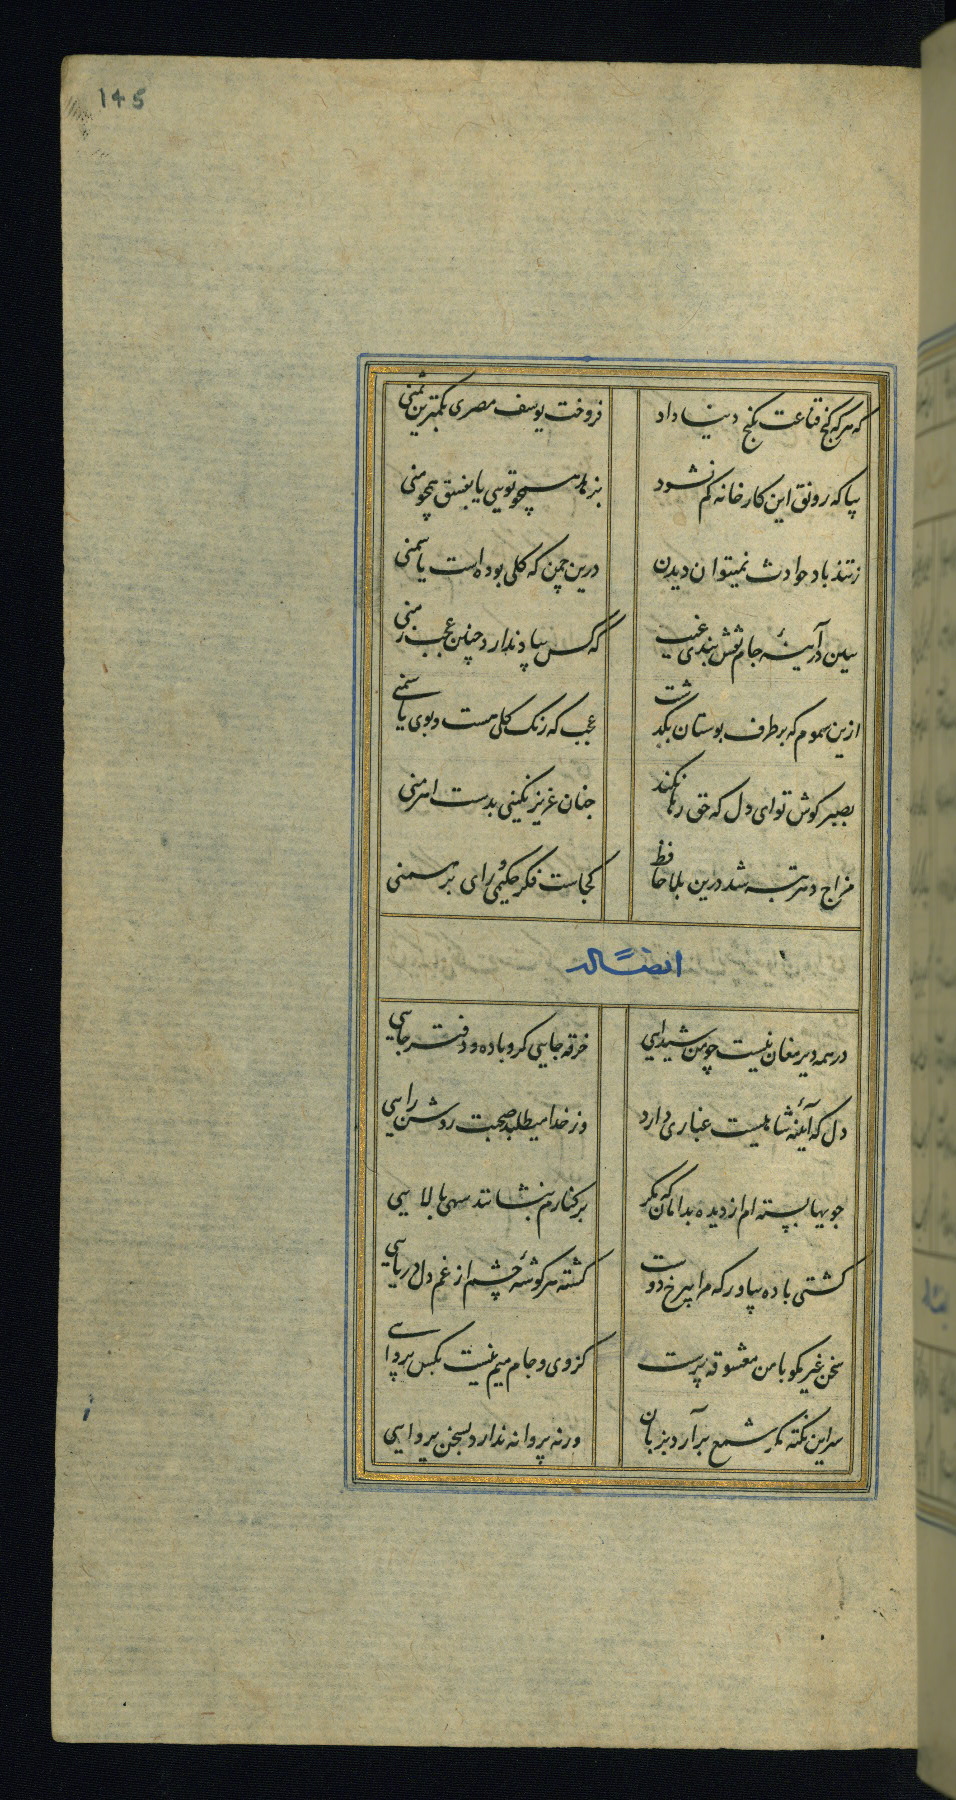 145
که هرکه کنج قناعت بکنج دنیا داد
فروخت یوسف مصری بکمترین ثمنی
بیا که رونق این کارخانه کم نشود
بزهد همچو تویی یا بفسق همچو منی
زتند باد حوادث نمیتوان دیدن
درین چمن که کلی بوده است یا سمنی
ببین در آینهٔ جام نقش بندی غیب
که کس بیاد ندارد چنین عجب زمنی
ازین سموم که بر طرف بوستان بگذشت
عجب که رنک کلی هست و بوی یاسمنی
بصبر کوش تو ای دل که حق رها نکند
چنان عزیز نکینی بدست اهرمنی
مزاج دهر تبه شد درین بلا حافظ
کجاست فکر حکیمی و رای برهمنی
ایضاً له
در همه دیر مغان نیست چو من شیدایی
خرقه جایی کرو باده و دفتر جایی
دل که آینهٔ شاهیست غباری دارد
وز خدا میطلبد صحبت روشن رایی
جویها بسته ام از دیده بدامان که مکر
بر کنارم بنشانند سهی بالایی
کشتی باده بیاور که مرا بی رخ دوست
کشته هر کوشهٔ چشم از غم دل دریایی
سخن غیر مکو با من معشوقه پرست
کز وی و جام میم نیست بکس پروایی
سر این نکته مکر شمع برآرد بزبان
ورنه پروانه ندارد بسخن پروایی